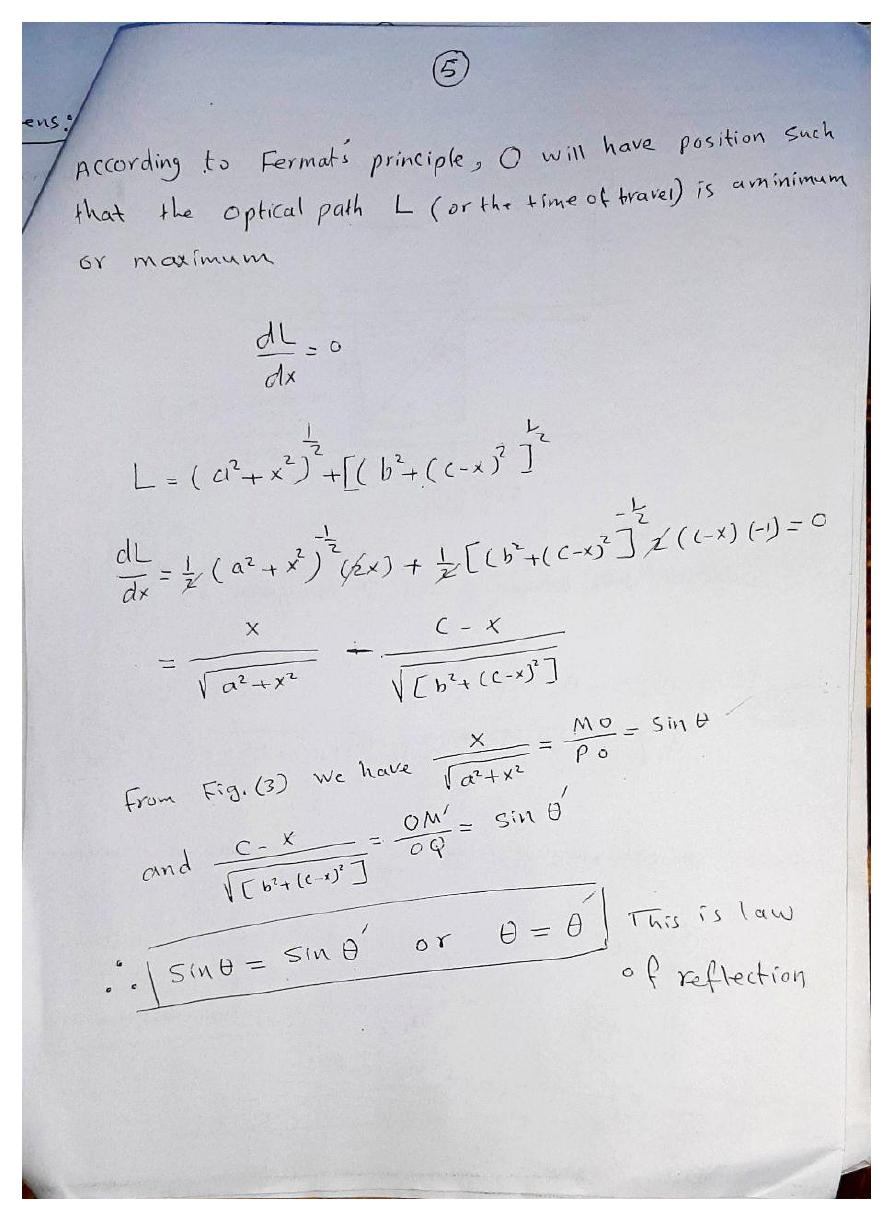 5
ens:
According to Fermat's principle, O will have position such
that the optical path L (or the time of travel) is aminimum
or maximum
dL/dx = 0
L = (a²+x²)^1/2 + [(b²+(c-x)²]^1/2
dL/dx = 1/2 (a²+x²)^-1/2 (2x) + 1/2 [(b²+(c-x)²]^-1/2 2(c-x)(-1) = 0
= x/√a²+x² - c-x/√[b²+(c-x)²]
from Fig.(3) we have x/√a²+x² = MO/PO = Sin θ
and c-x/√[b²+(c-x)²] = OM'/OQ = Sin θ'
∴ Sinθ = Sin θ' or θ = θ' This is law
of reflection